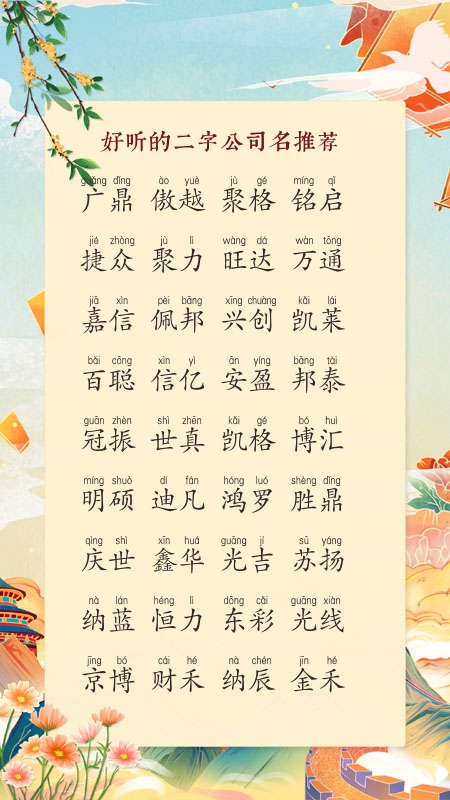 好听的二字公司名推荐
guǎng dǐng ào yuè jù gé míng qǐ
广鼎 傲越 聚格 铭启
jié zhòng jù lì wàng dá wàn tōng
捷众 聚力 旺达 万通
jiā xìn pèi bāng xīng chuàng kǎi lái
嘉信 佩邦 兴创 凯莱
bǎi cōng xìn yì ān yíng bāng tài
百聪 信亿 安盈 邦泰
guān zhèn shì zhēn kǎi gé bó huì
冠振 世真 凯格 博汇
míng shuò dí fán hóng luó shèng dǐng
明硕 迪凡 鸿罗 胜鼎
qìng shì xīn huá guāng jí sū yáng
庆世 鑫华 光吉 苏扬
nà lán héng lì dōng cǎi guāng xiàn
纳蓝 恒力 东彩 光线
jīng bó cái hé nà chén jīn hé
京博 财禾 纳辰 金禾